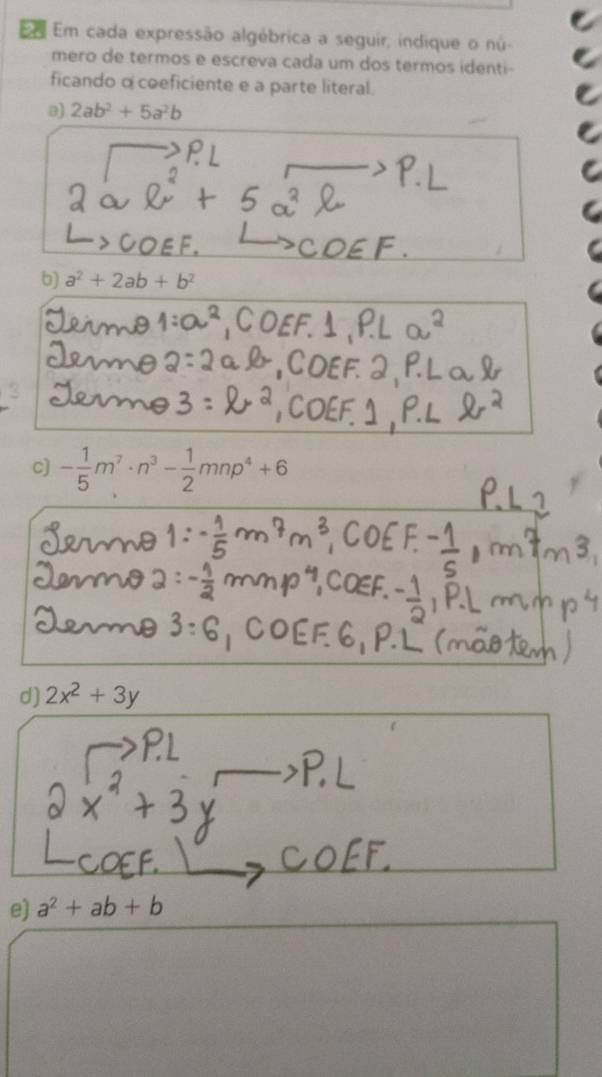 2. Em cada expressão algébrica a seguir, indique o nú-
mero de termos e escreva cada um dos termos identi-
ficando o coeficiente e a parte literal.
a) 2ab² + 5a²b
P.L P.L
2ab² + 5a²b
COEF. COEF.
b) a² + 2ab + b²
Termo 1: a², COEF. 1, P.L a²
Termo 2: 2ab, COEF. 2, P.L ab
Termo 3: b², COEF. 1, P.L b²
c) -1/5 m⁷ · n³ - 1/2 mnp⁴ + 6
P.L
Termo 1: -1/5 m⁷n³, COEF. -1/5, m⁷n³,
Termo 2: -1/2 mnp⁴, COEF. -1/2, P.L mnp⁴
Termo 3: 6, COEF. 6, P.L (não tem)
d) 2x² + 3y
P.L P.L
2x² + 3y
COEF. COEF.
e) a² + ab + b